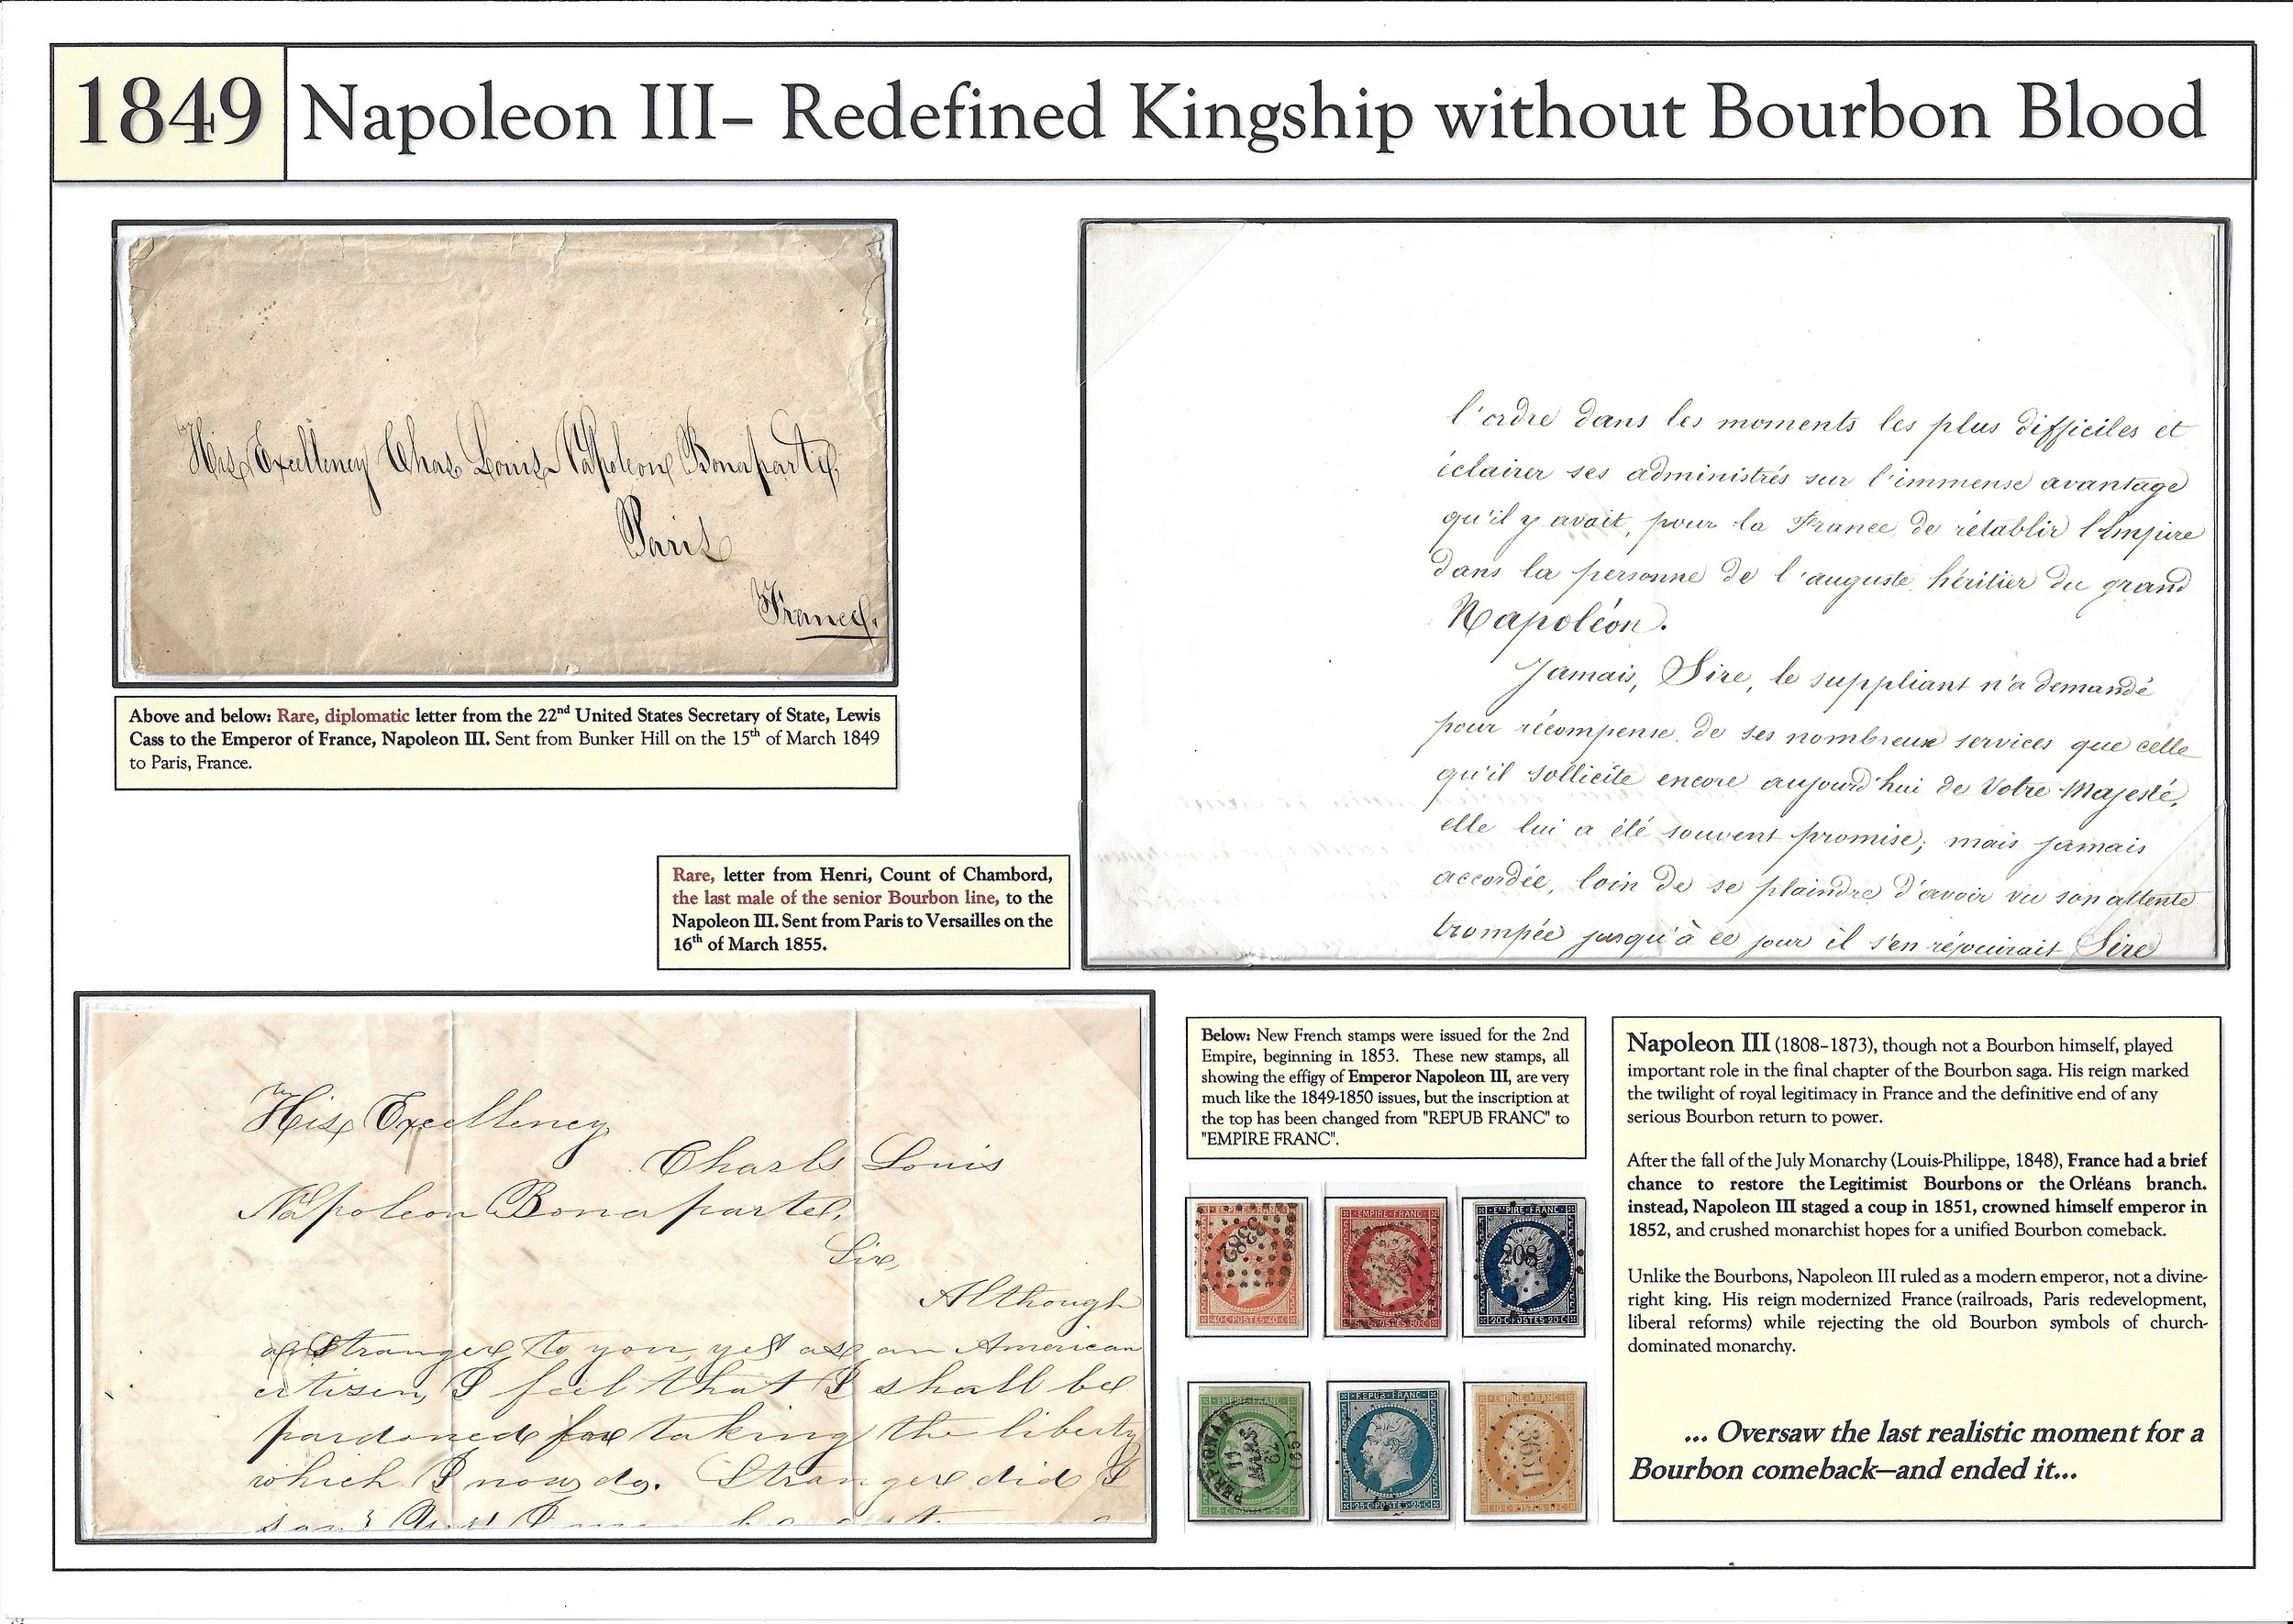 1849
Napoleon III– Redefined Kingship without Bourbon Blood
His Excellency Chas Louis Napoleon Bonaparte,
Paris
France.
Above and below: Rare, diplomatic letter from the 22nd United States Secretary of State, Lewis
Cass to the Emperor of France, Napoleon III. Sent from Bunker Hill on the 15th of March 1849
to Paris, France.
l'ordre dans les moments les plus difficiles et
éclairer ses administrés sur l'immense avantage
qu'il y avait, pour la France de rétablir l'Empire
dans la personne de l'auguste héritier du grand
Napoléon.
Jamais, Sire, le suppliant n'a demandé
pour récompense de ses nombreux services que celle
qu'il sollicite encore aujourd'hui de Votre Majesté,
elle lui a été souvent promise; mais jamais
accordée, loin de se plaindre d'avoir vu son attente
trompée jusqu'à ce jour il s'en réjouirait Sire
Rare, letter from Henri, Count of Chambord,
the last male of the senior Bourbon line, to the
Napoleon III. Sent from Paris to Versailles on the
16th of March 1855.
His Excellency
Charls Louis
Napoleon Bonaparte,
Sir,
Although
a Stranger to you, yet as an American
citizen, I feel that I shall be
pardoned for taking the liberty
which I now do. Stranger did I
Below: New French stamps were issued for the 2nd
Empire, beginning in 1853. These new stamps, all
showing the effigy of Emperor Napoleon III, are very
much like the 1849-1850 issues, but the inscription at
the top has been changed from "REPUB FRANC" to
"EMPIRE FRANC".
EMPIRE FRANC
3382
40 C POSTES 40 C
EMPIRE FRANC
POSTES 80 C
EMPIRE FRANC
208
20 C POSTES 20 C
EMPIRE FRANC
PERPIGNAN
11
MARS
(65)
5 C POSTES 5 C
REPUB FRANC
25 C POSTES 25 C
EMPIRE FRANC
3651
10 C POSTES 10 C
Napoleon III (1808–1873), though not a Bourbon himself, played
important role in the final chapter of the Bourbon saga. His reign marked
the twilight of royal legitimacy in France and the definitive end of any
serious Bourbon return to power.
After the fall of the July Monarchy (Louis-Philippe, 1848), France had a brief
chance to restore the Legitimist Bourbons or the Orléans branch.
instead, Napoleon III staged a coup in 1851, crowned himself emperor in
1852, and crushed monarchist hopes for a unified Bourbon comeback.
Unlike the Bourbons, Napoleon III ruled as a modern emperor, not a divine-
right king. His reign modernized France (railroads, Paris redevelopment,
liberal reforms) while rejecting the old Bourbon symbols of church-
dominated monarchy.
... Oversaw the last realistic moment for a
Bourbon comeback—and ended it...